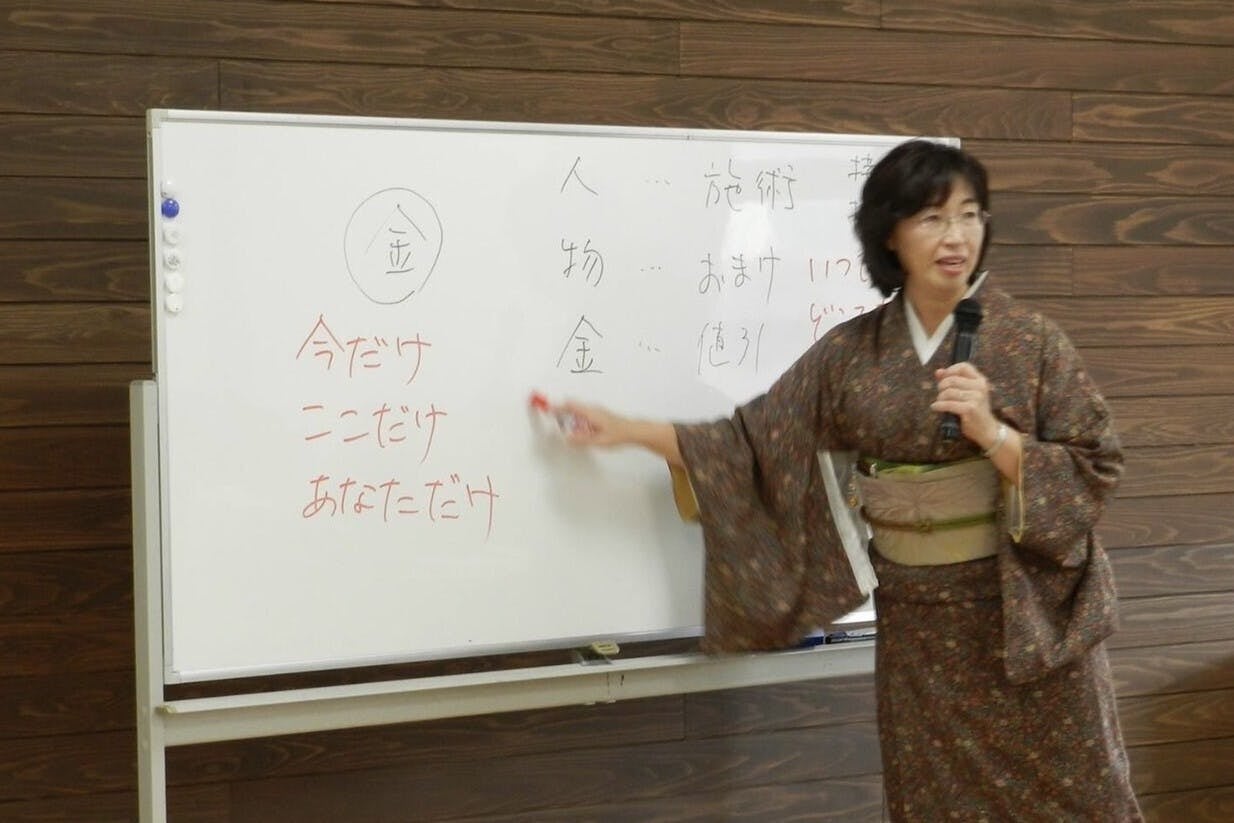 金
今だけ
ここだけ
あなただけ
人 … 施術
物 … おまけ いつ
金 … 値引